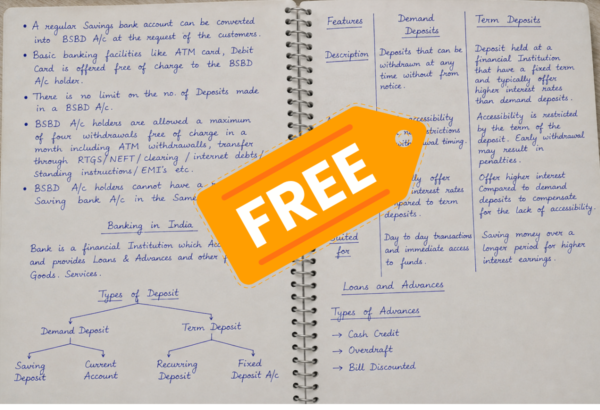 • A regular Savings bank account can be converted
into BSBD A/c at the request of the customers.
• Basic banking facilities like ATM card, Debit
Card is offered free of charge to the BSBD
A/c holder.
• There is no limit on the no. of Deposits made
in a BSBD A/c.
• BSBD A/c holders are allowed a maximum
of four withdrawals free of charge in a
month including ATM withdrawalls, transfer
through RTGS/NEFT/clearing/internet debts/
Standing instructions/EMI's etc.
• BSBD A/c holders cannot have a
Saving bank A/c in the Same
Banking in India
Bank is a financial Institution which
and provides Loans & Advances and other
Goods. Services.
Types of Deposit
Demand Deposit Term Deposit
Saving Deposit
Current Account
Recurring Deposit
Fixed Deposit A/c
Features Demand Deposits Term Deposits
Description
Deposits that can be
withdrawn at any
time without from
notice.
Deposit held at a
financial Institution
that have a fixed term
and typically offer
higher interest rates
than demand deposits.
accessibility
timing.
Accessibility is restricted
by the term of the
deposit. Early withdrawal
may result in
penalties.
offer
interest rates
to term
deposits.
Offer higher interest
Compared to demand
deposits to compensate
for the lack of accessibility.
for
Day to day transactions
and immediate access
to funds.
Saving money over a
longer period for higher
interest earnings.
FREE
Loans and Advances
Types of Advances
→ Cash Credit
→ Overdraft
→ Bill Discounted